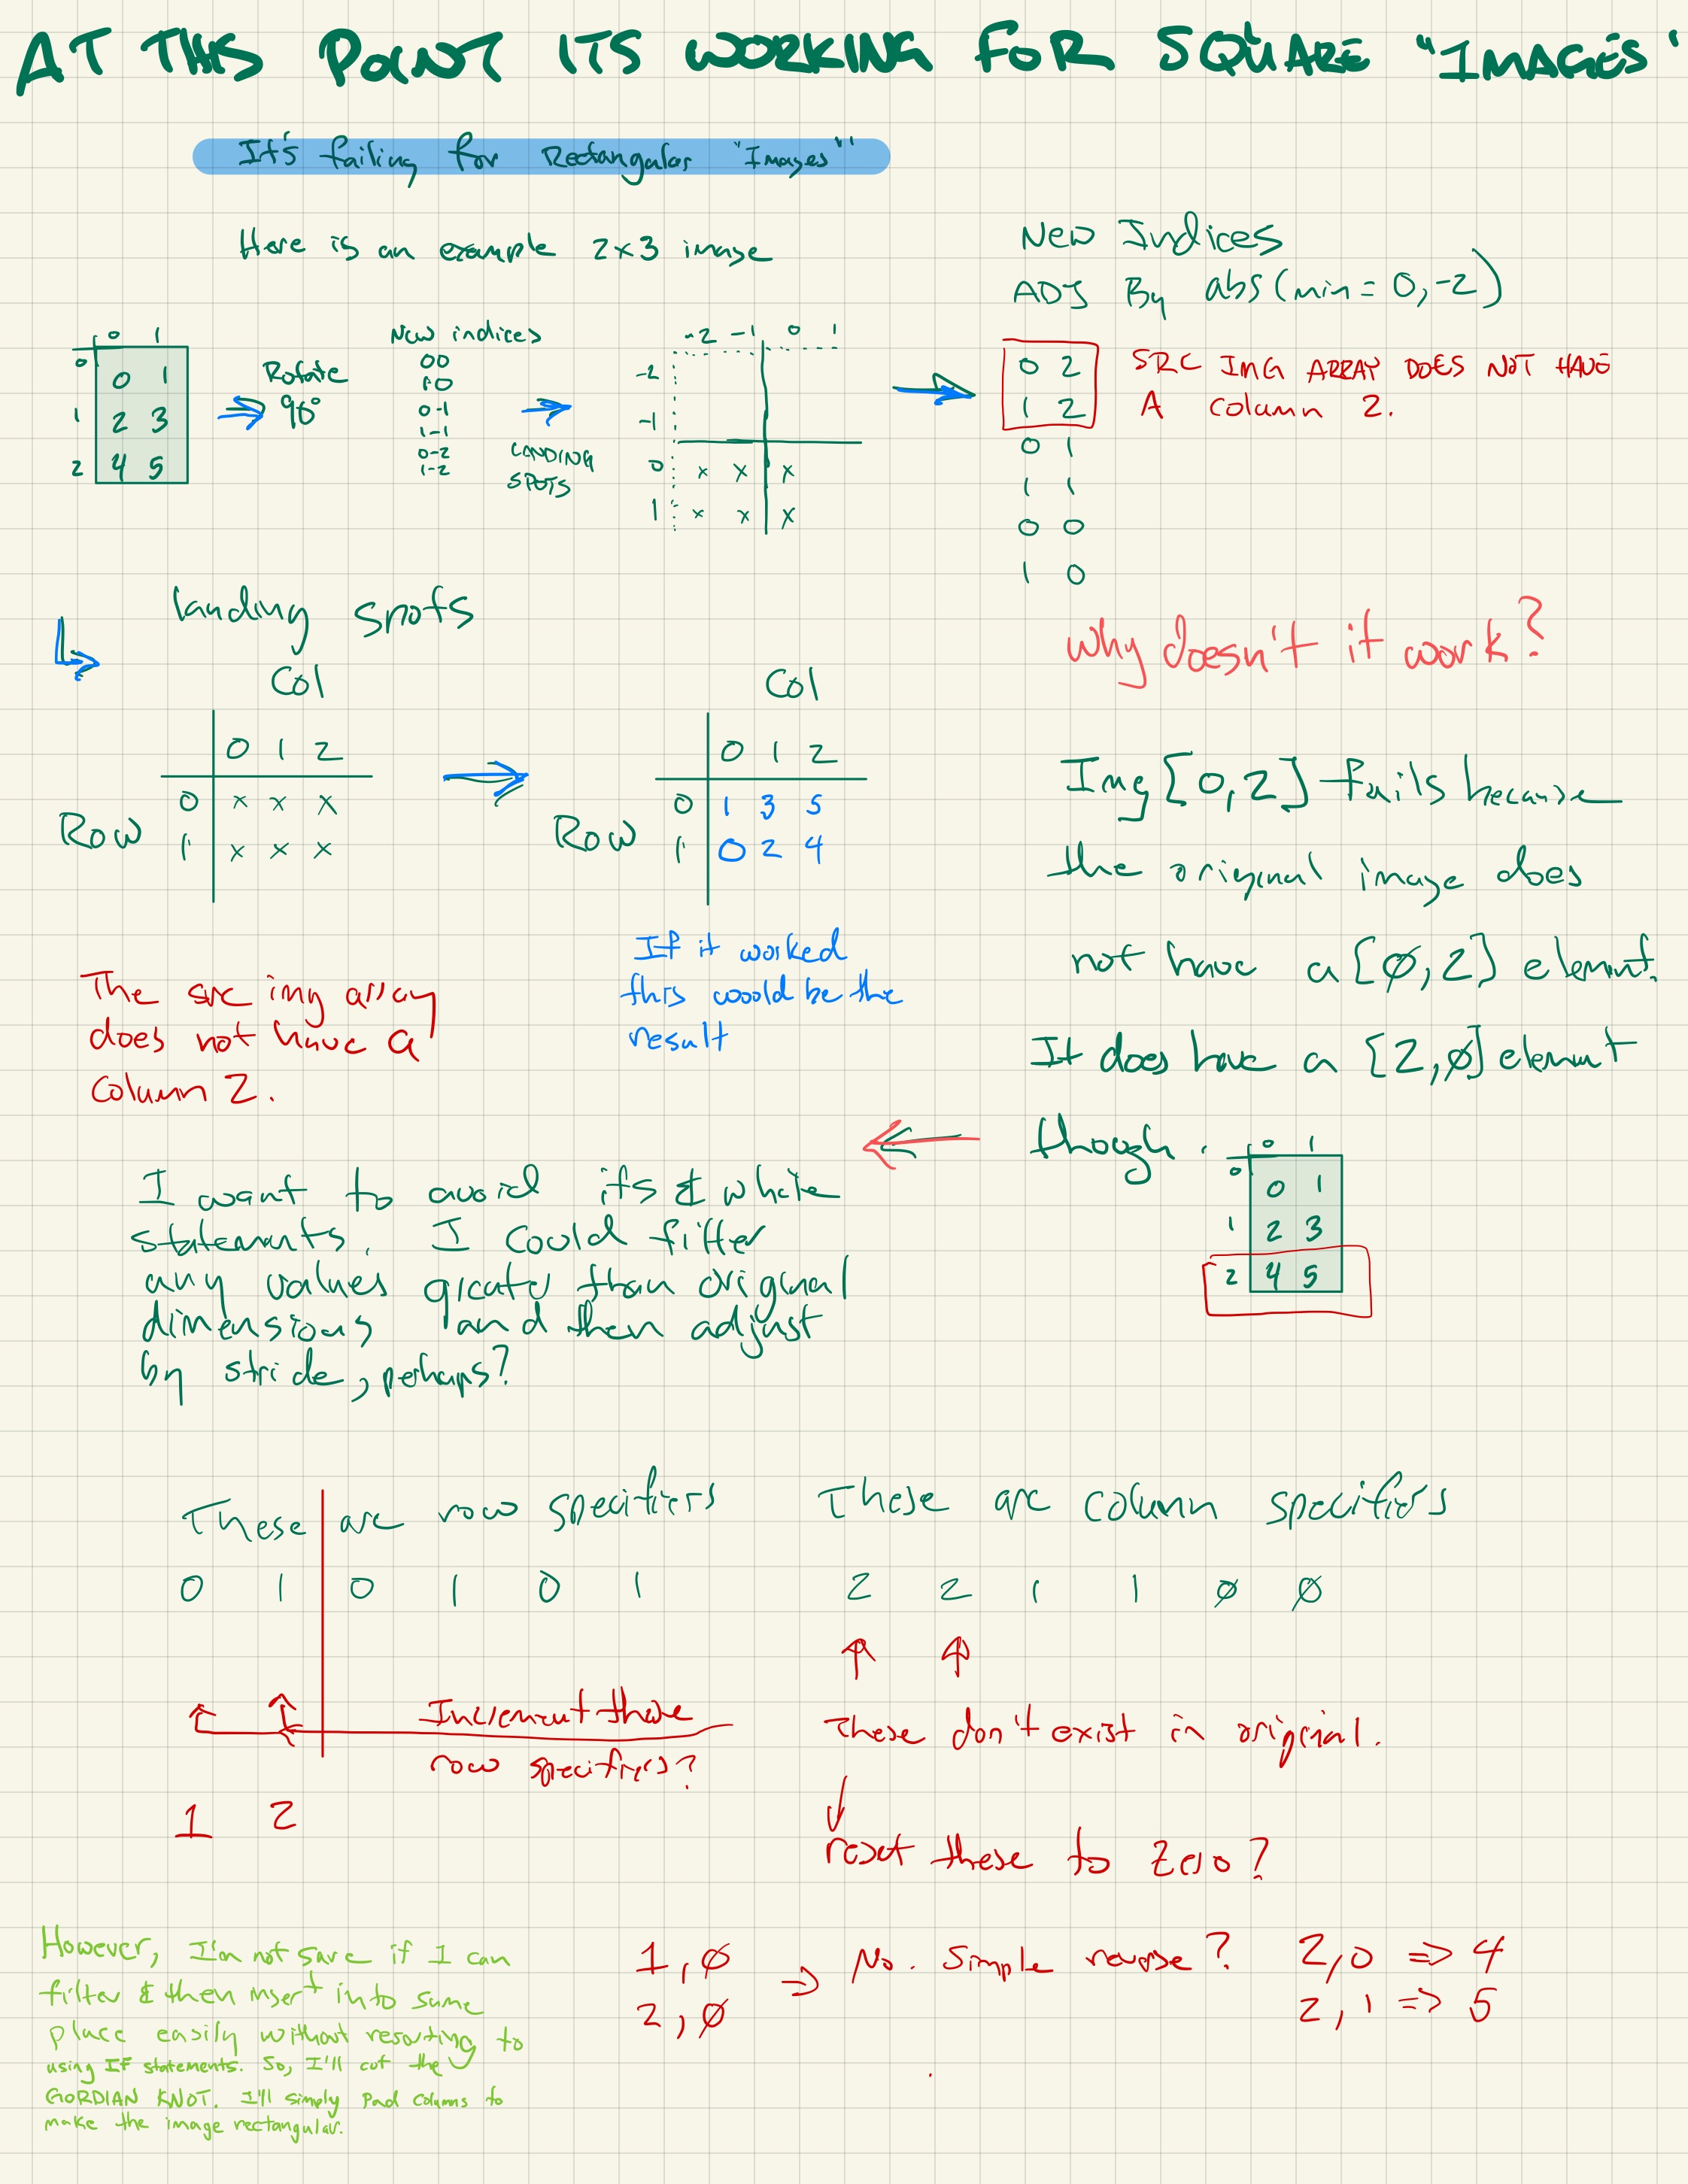 AT THIS POINT ITS WORKING FOR SQUARE "IMAGES"
It's failing for Rectangular "Images"
Here is an example 2x3 image
0 1
0 0 1
1 2 3
2 4 5
Rotate
90°
New indices
00
10
0-1
1-1
0-2
1-2
LANDING
SPOTS
-2 -1 0 1
-2
-1
0 x x x
1 x x x
New Indices
ADJ By abs(min = 0,-2)
0 2
1 2
0 1
1 1
0 0
1 0
SRC IMG ARRAY DOES NOT HAVE
A Column 2.
landing spots
Col
0 1 2
Row
0 x x x
1 x x x
Col
0 1 2
Row
0 1 3 5
1 0 2 4
The src img array
does not have a
Column 2.
If it worked
this would be the
result
why doesn't it work?
Img[0,2] fails because
the original image does
not have a [∅,2] element.
It does have a [2,∅] element
though.
0 1
0 0 1
1 2 3
2 4 5
I want to avoid ifs & while
statements. I could filter
any values greater than original
dimensions and then adjust
by stride, perhaps?
These are row specifiers
0 1 0 1 0 1
Increment these
row specifiers?
1 2
These are column specifiers
2 2 1 1 ∅ ∅
These don't exist in original.
reset these to zero?
However, I'm not sure if I can
filter & then insert into same
place easily without resorting to
using IF statements. So, I'll cut the
GORDIAN KNOT. I'll simply Pad columns to
make the image rectangular.
1,∅
2,∅
=> No. Simple reverse?
2,0 => 4
2,1 => 5